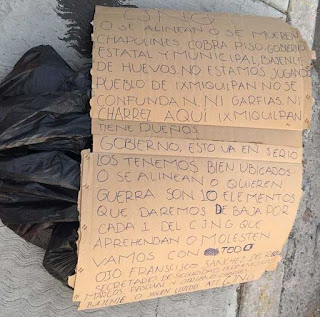 O SE ALINEAN O SE MUEREN
CHAPULINES COBRA PISO, GOBIERNO
ESTATAL Y MUNICIPAL, BAJENLE
DE HUEVOS. NO ESTAMOS JUGANDO
PUEBLO DE IXMIQUILPAN NO SE
CONFUNDAN, NI GARFIAS, NI
CHARREZ AQUI IXMIQUILPAN
TIENE DUEÑOS
GOBIERNO, ESTO VA EN SERIO
LOS TENEMOS BIEN UBICADOS
O SE ALINEAN O QUIEREN
GUERRA SON 10 ELEMENTOS
QUE DAREMOS DE BAJA POR
CADA 1 DEL CJNG QUE
APREHENDAN O MOLESTEN
VAMOS CON TODO
OJO FRANSCISCO SANCHEZ
SECRETARIO DE SEGURIDAD
MARCOS
BAJENLE